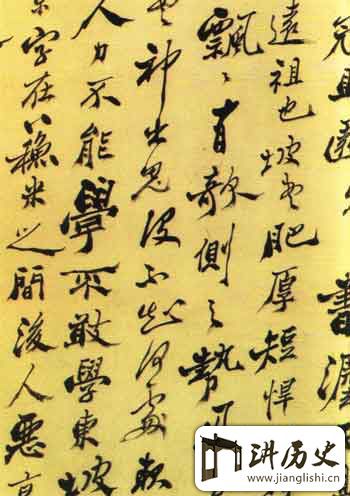 書
遠祖也坡老肥厚短悍
飄〻有欹側之勢
神出鬼没不知何處
人力不能學不敢學東坡
字在 米之間後人惡
讲历史
www.jianglishi.cn